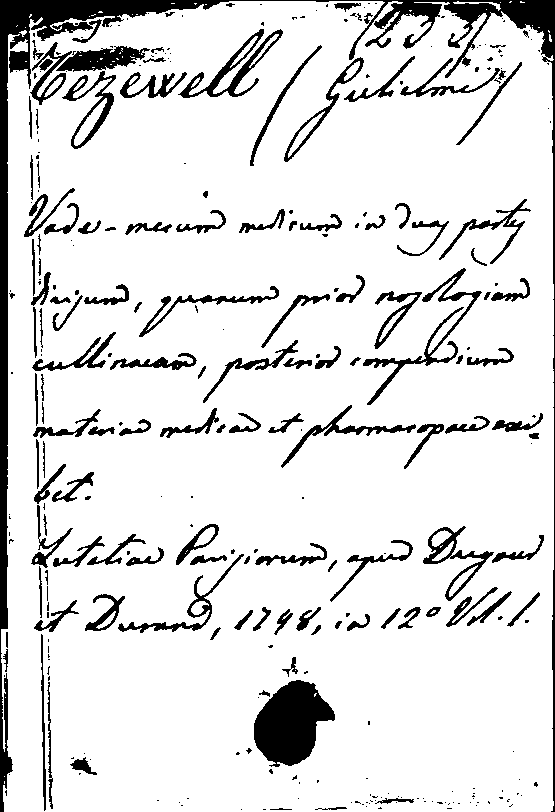 (233)
Tezewell (Gulielmi)
Vade-mecum medicum in duas partes
divisum, quarum prior nosologiam
cullinaeam, posterior compendium
materiae medicae et pharmacopaeae exi-
bet.
Lutetiae Parisiorum, apud Dugour
et Durand, 1798, in 12º Vol. 1.